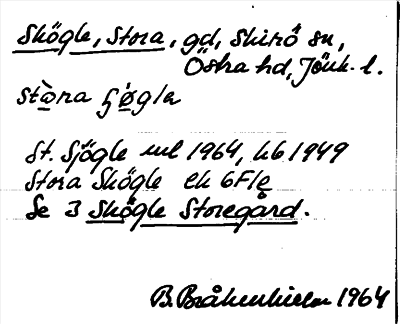 Skögle, Stora, gd, Skirö sn,
Östra hd, Jönk. l.
stòra ʃø̀glɐ
St. Sjögle ml 1964, hb 1949
Stora Skögle ek 6F1e
Se 3 Skögle Storegård.
B. 1964